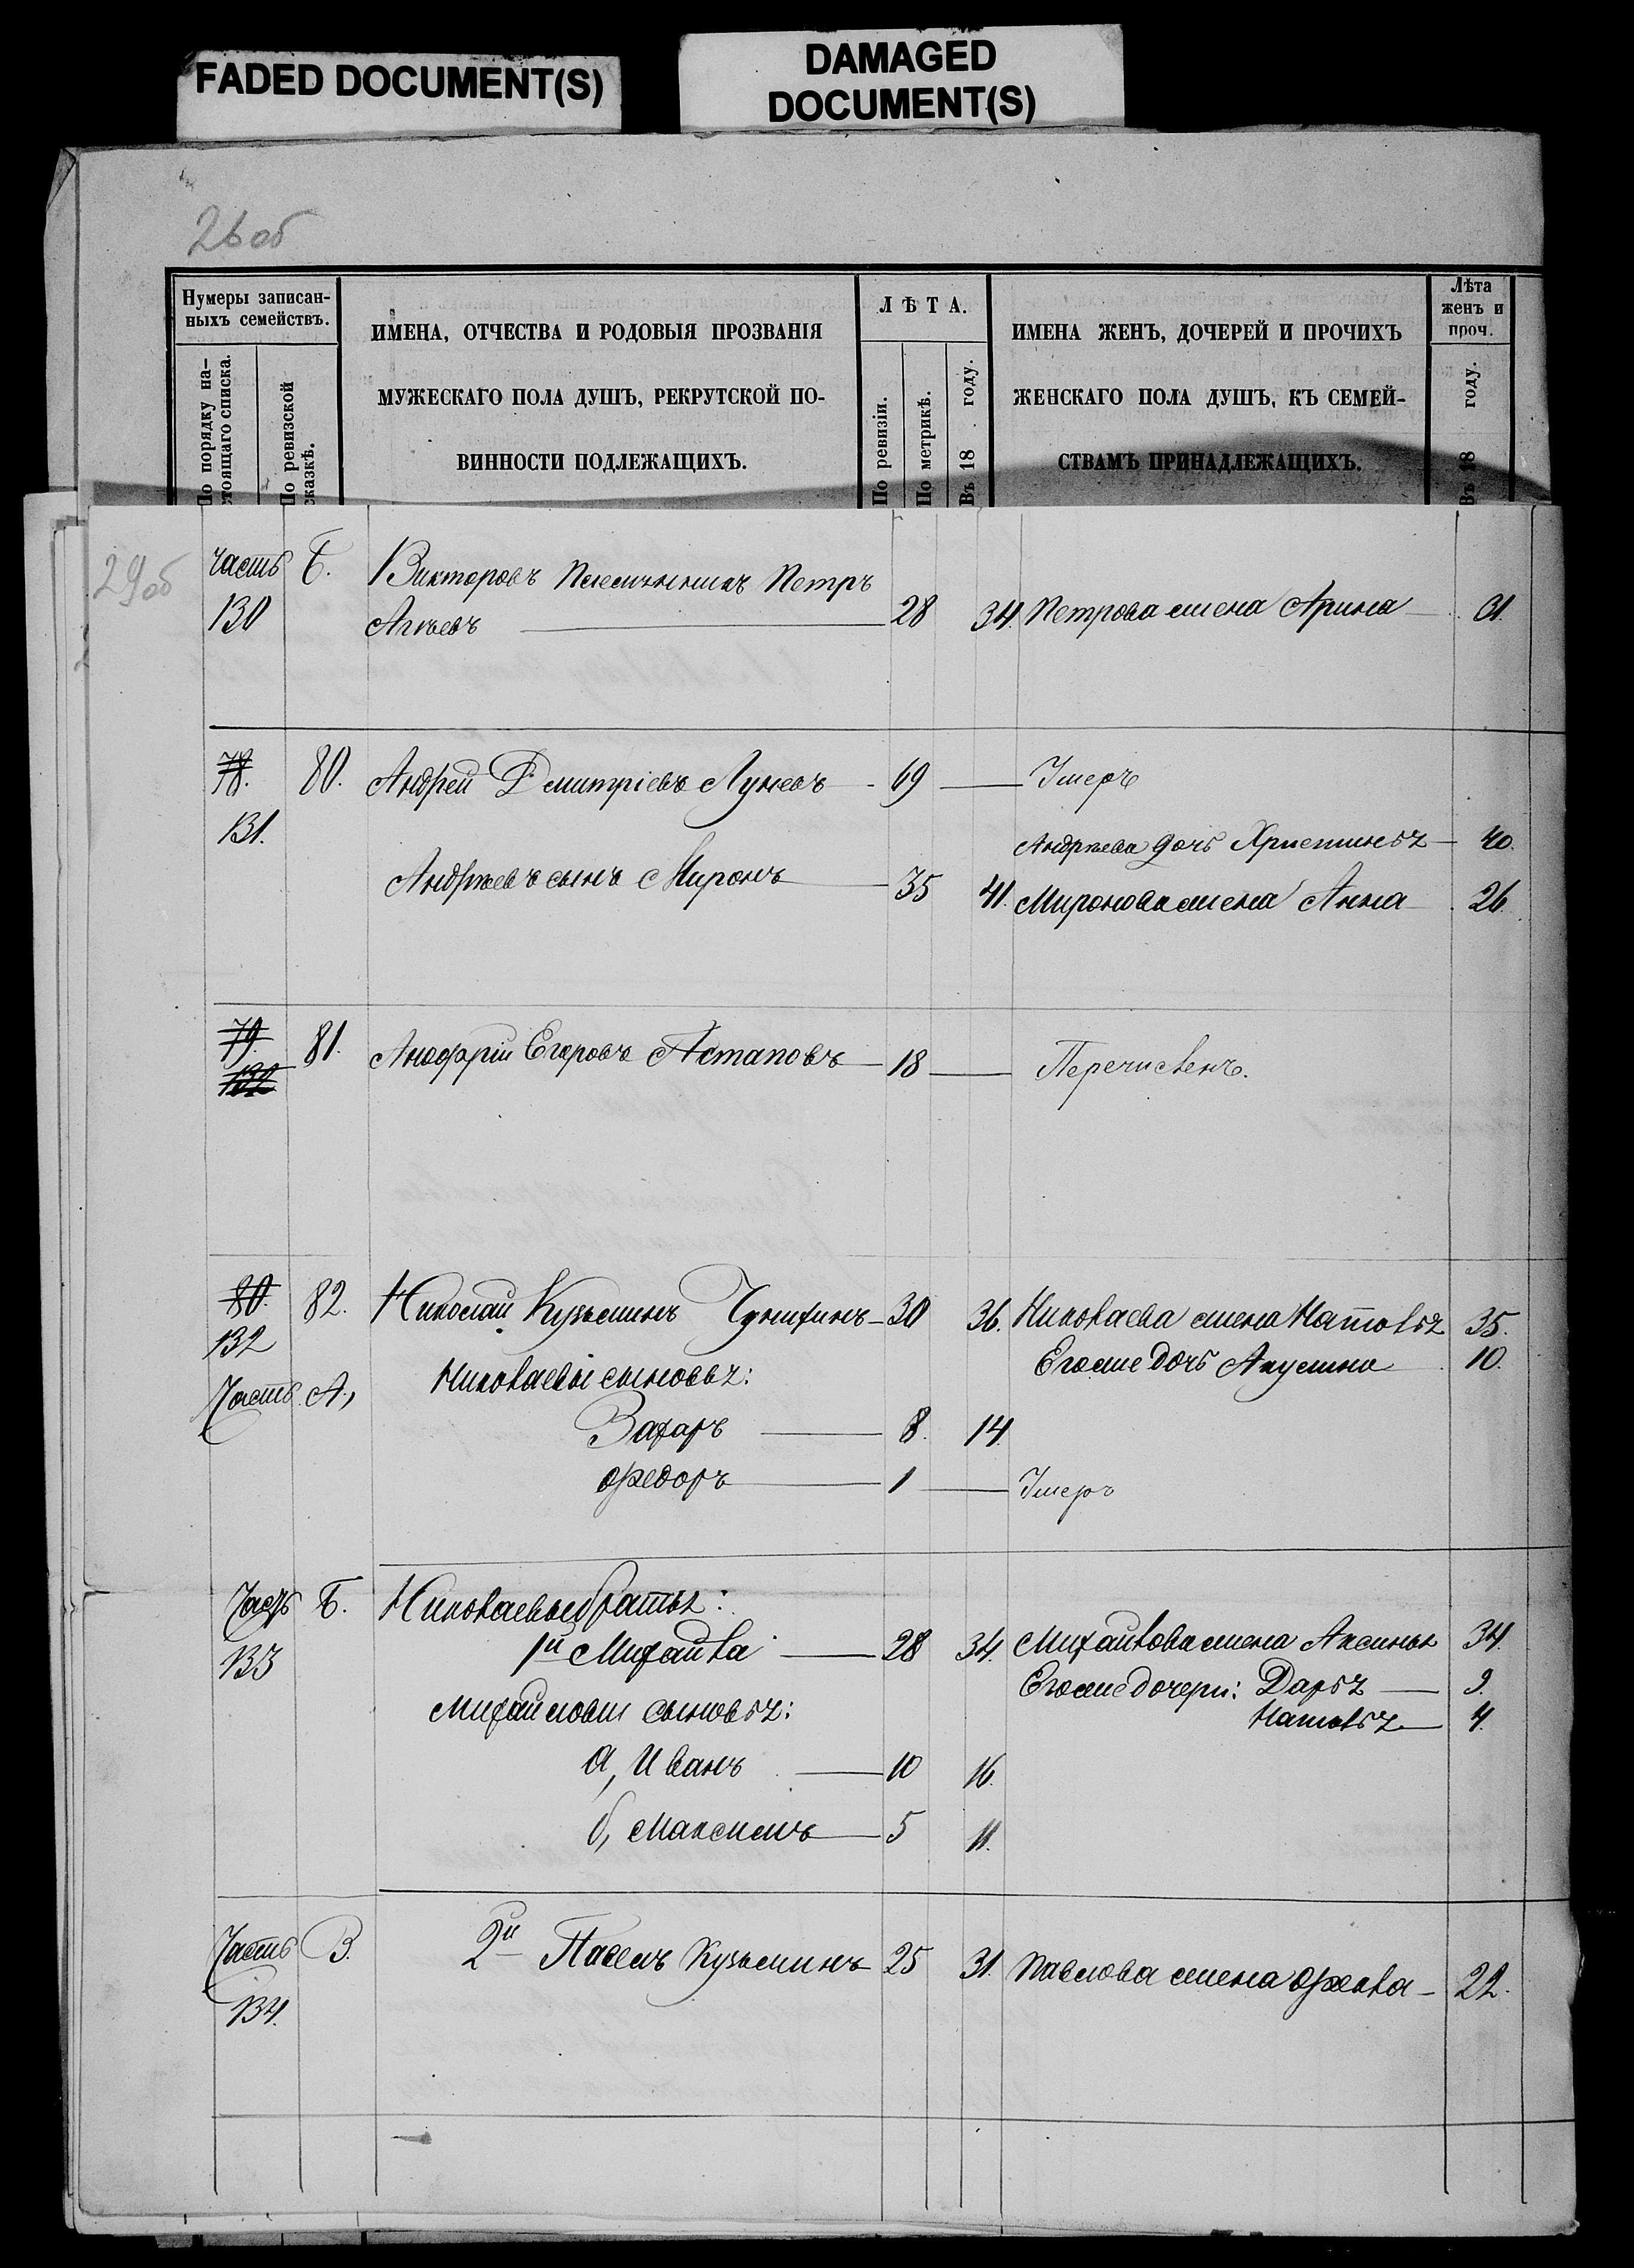 FADED DOCUMENT(S)
DAMAGED
DOCUMENT(S)
26 об
Нумеры записан-
ныхъ семействъ.
По порядку на-
стоящаго списка.
По ревизской
сказкѣ.
ИМЕНА, ОТЧЕСТВА И РОДОВЫЯ ПРОЗВАНІЯ
МУЖЕСКАГО ПОЛА ДУШЪ, РЕКРУТСКОЙ ПО-
ВИННОСТИ ПОДЛЕЖАЩИХЪ.
ЛѢТА.
По ревизіи.
По метрикѣ.
Въ 18 году.
ИМЕНА ЖЕНЪ, ДОЧЕРЕЙ И ПРОЧИХЪ
ЖЕНСКАГО ПОЛА ДУШЪ, КЪ СЕМЕЙ-
СТВАМЪ ПРИНАДЛЕЖАЩИХЪ.
Лѣта
женъ и
проч.
Въ 18 году.
29 об
Часть Б. Викторовъ Племянникъ Петръ
130 28 34. Петрова жена Арина 31.
78. 80. Андрей Дмитріевъ Луневъ 69 Умеръ
131. Андрѣева дочь Христинья 40.
Андрѣевъ сынъ Миронъ 35 41. Миронова жена Анна 26.
79. 81. Анофрій Егоровъ Астаповъ 18 Перечисленъ.
132
80. 82. Николай Кузьминъ Чунихинъ 30 36. Николаева жена Наталья 35.
132 Егоже дочь Акулина 10.
Часть А, Николаевы сыновья:
Захаръ 8. 14.
Федоръ 1 Умеръ
Часть Б. Николаевы братья:
133 1й Михайла 28 34. Михайлова жена Аксинья 34.
Егоже дочери: Дарья 9.
Михайловы сыновья: Наталья 4.
а, Иванъ 10 16.
б, Максимъ 5 11.
Часть В. 2й Павелъ Кузьминъ 25 31. Павлова жена Фекла 22.
134.